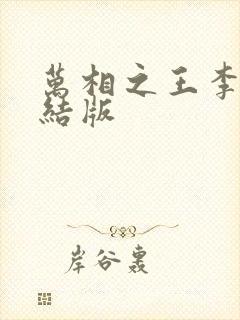 萬相之王李
結版
岸谷轟